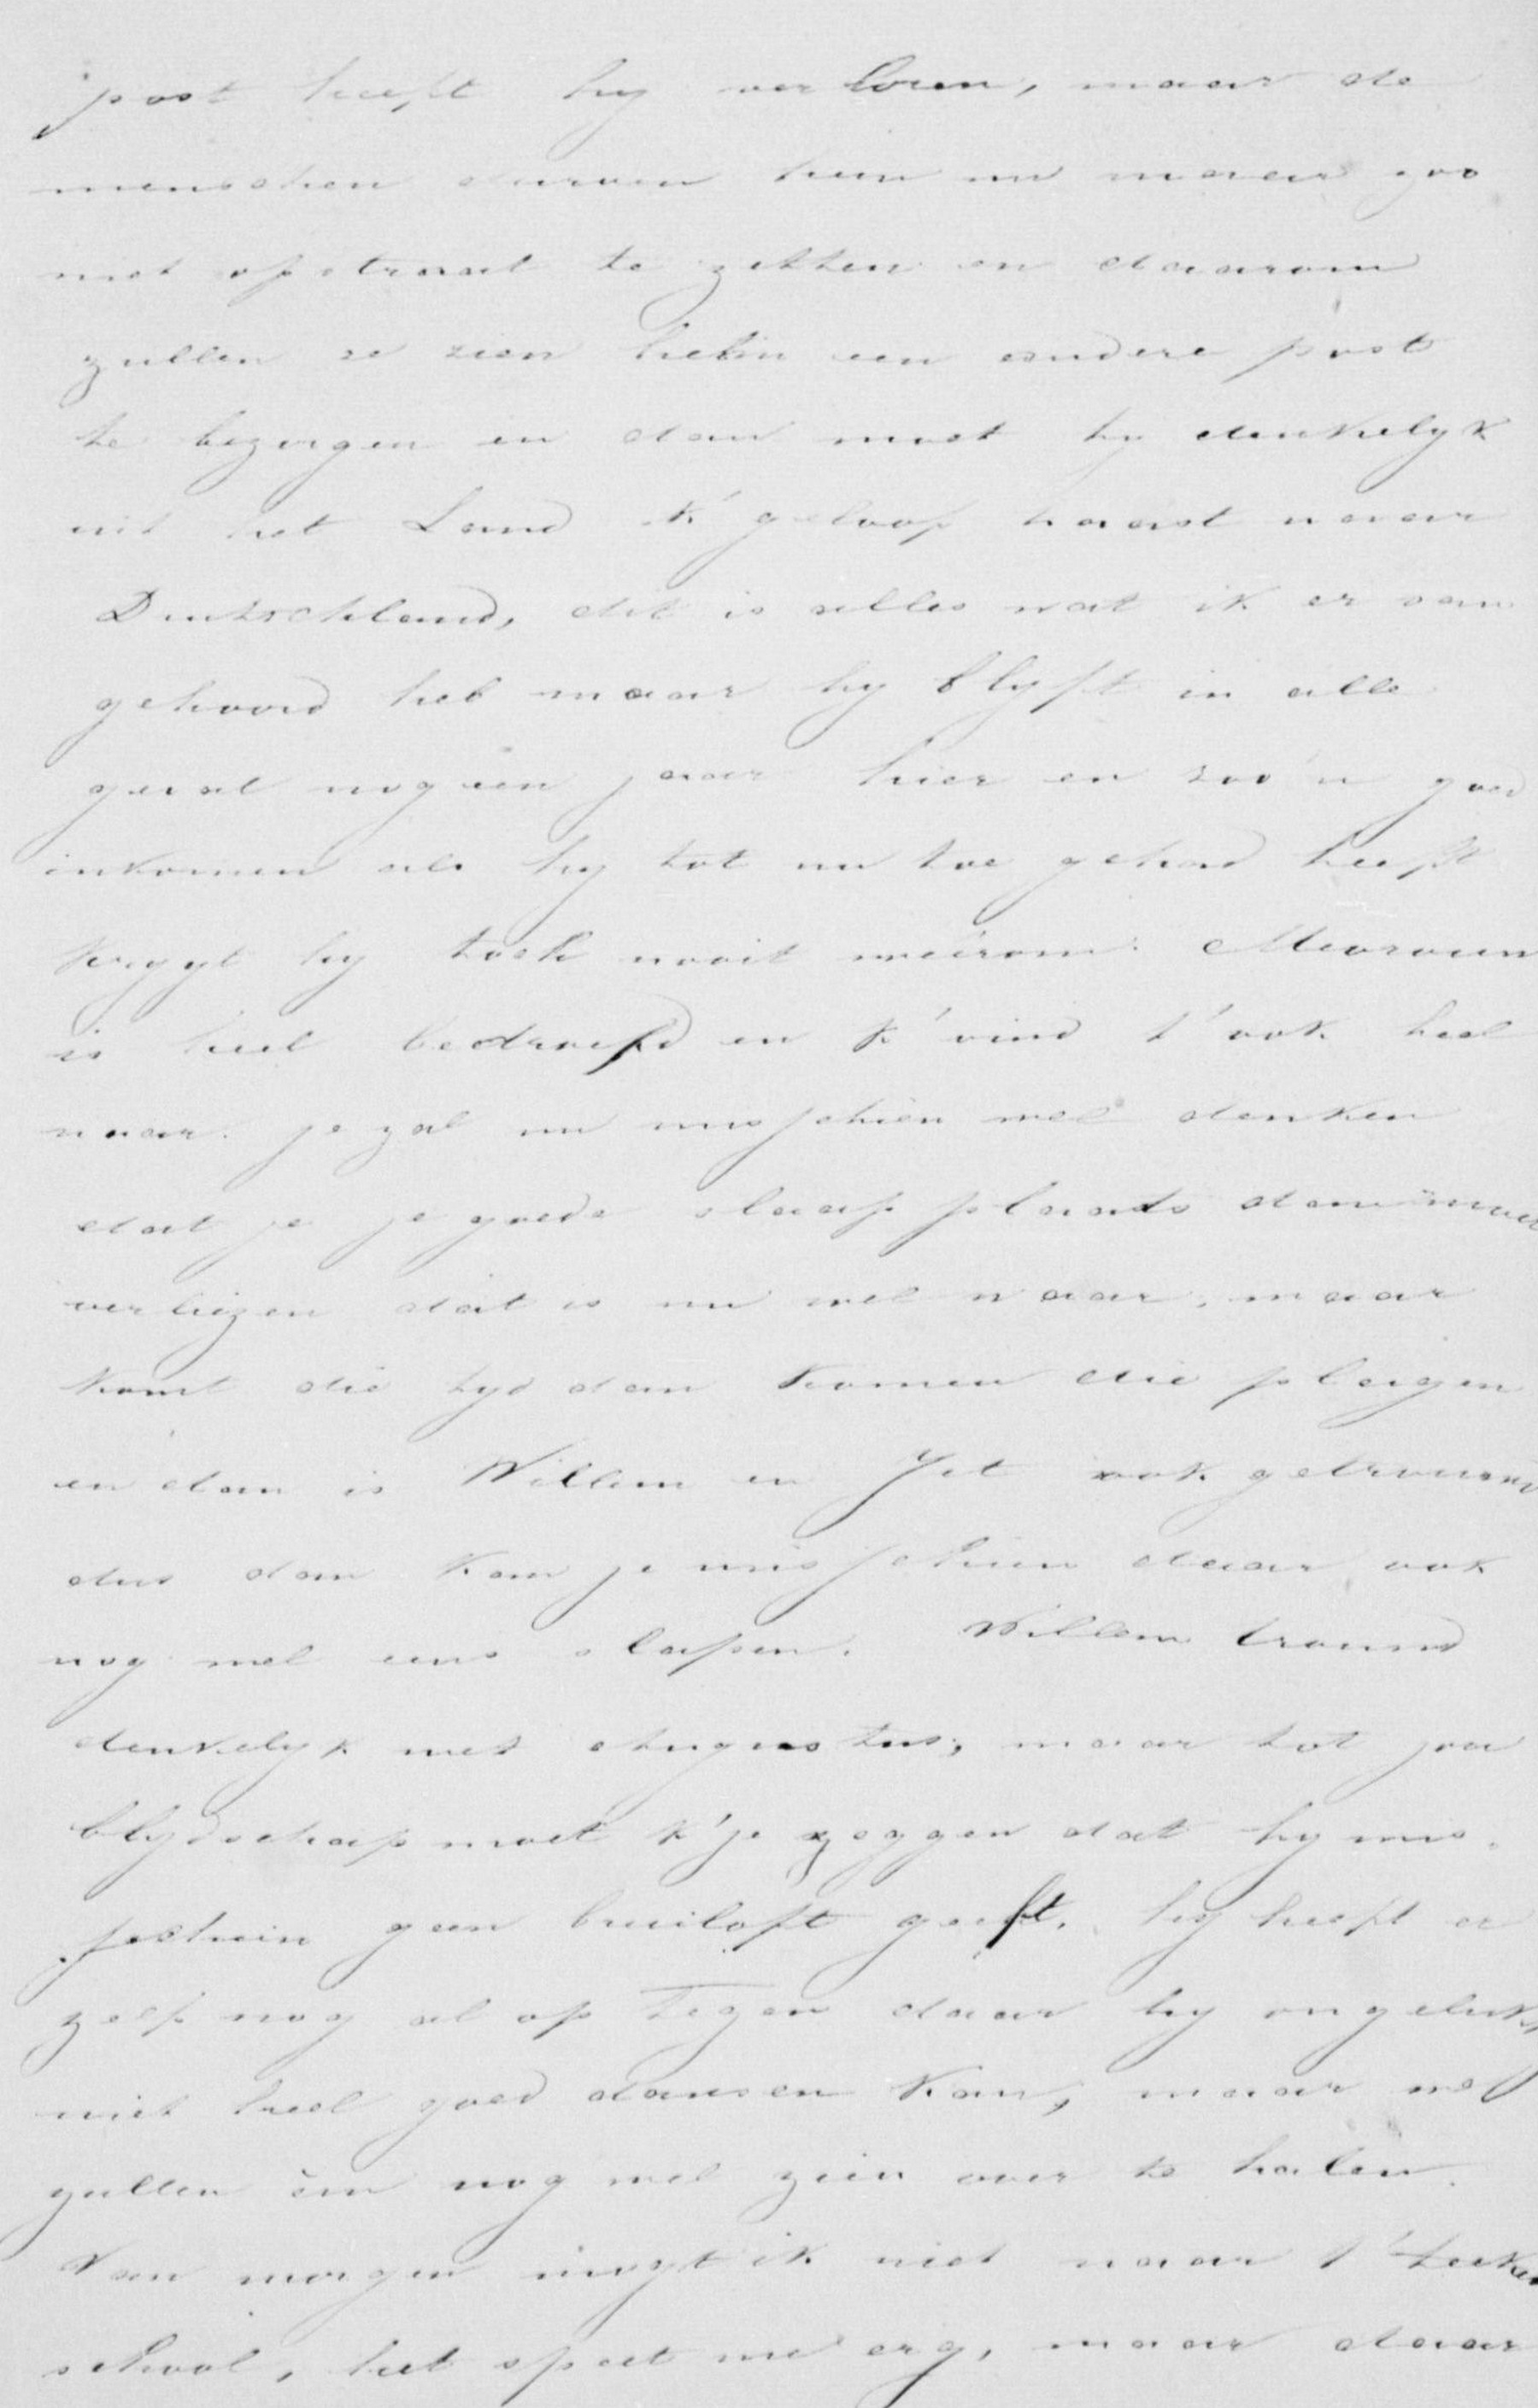 post heeft hy verloren, maar de
menschen durven hem nu maar zoo
niet opstraat te zetten en daarom
zullen ze zien hem een andere post
te bezorgen en dan moet hy denkelyk
uit het Land k' geloof haast naar
Duitschland, dit is alles wat ik er van
gehoord heb maar hy blyft in alle
geval nog één jaar hier en zoo'n goed
inkomen als hy tot nu toe gehad heeft
krygt hy toch nooit weêrom. Mevrouw
is heel bedroefd en k' vind t' ook heel
naar. je zal nu misschien wel denken
dat je je goede slaapplaats dan moet
verliezen dat is nu wel waar, maar
komt die tyd dan komen die plagen
en dan is Willem en Jet ook getrouwd
dus dan kan je misschien daar ook
nog wel eens slapen. Willem trouwd
denkelyk met Augustus, maar tot jou
blydschap moet k' je zeggen dat hy mis-
schien geen bruiloft geeft. hy heeft er
zelf nog al op tegen daar hy ongelukk
niet heel goed dansen kan, maar we
zullen em nog wel zien over te halen.
Van morgen mogt ik niet naar t' teeken
school, het speet me erg, maar daar